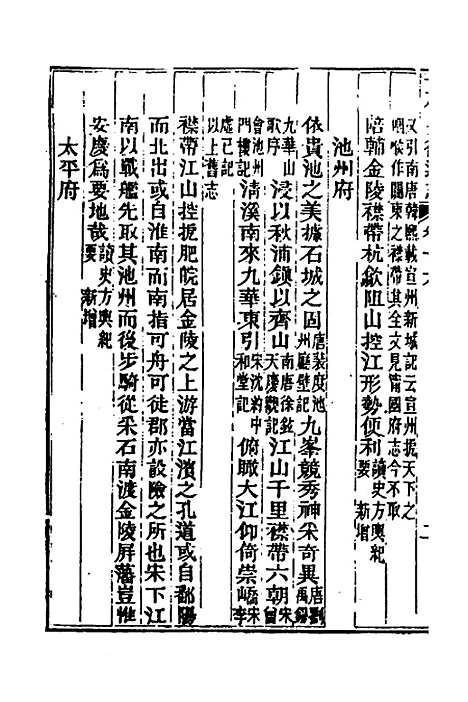 又引南唐韓熙載宣州新城記云宣州據天下之
咽喉作關東之襟帶其全文見甯國府志今不取
陪輔金陵襟帶杭歙阻山控江形勢便利讀史方輿紀要 新增
池州府
依貴池之美據石城之固唐裴度池州廳壁記九峯競秀神采奇異唐劉禹錫
九華山歌序浸以秋浦鎮以齊山南唐徐鉉天慶觀記江山千里襟帶六朝宋曾
會池州門樓記清溪南來九華東引宋沈豹中和堂記俯瞰大江仰倚崇嶠宋李
虛己記
以上舊志
襟帶江山控扼肥皖居金陵之上游當江濱之孔道或自鄱陽
而北出或自淮南而南指可舟可徒郡亦設險之所也宋下江
南以戰艦先取其池州而後步騎從采石南渡金陵屏藩豈惟
安慶爲要地哉讀史方輿紀要 新增
太平府